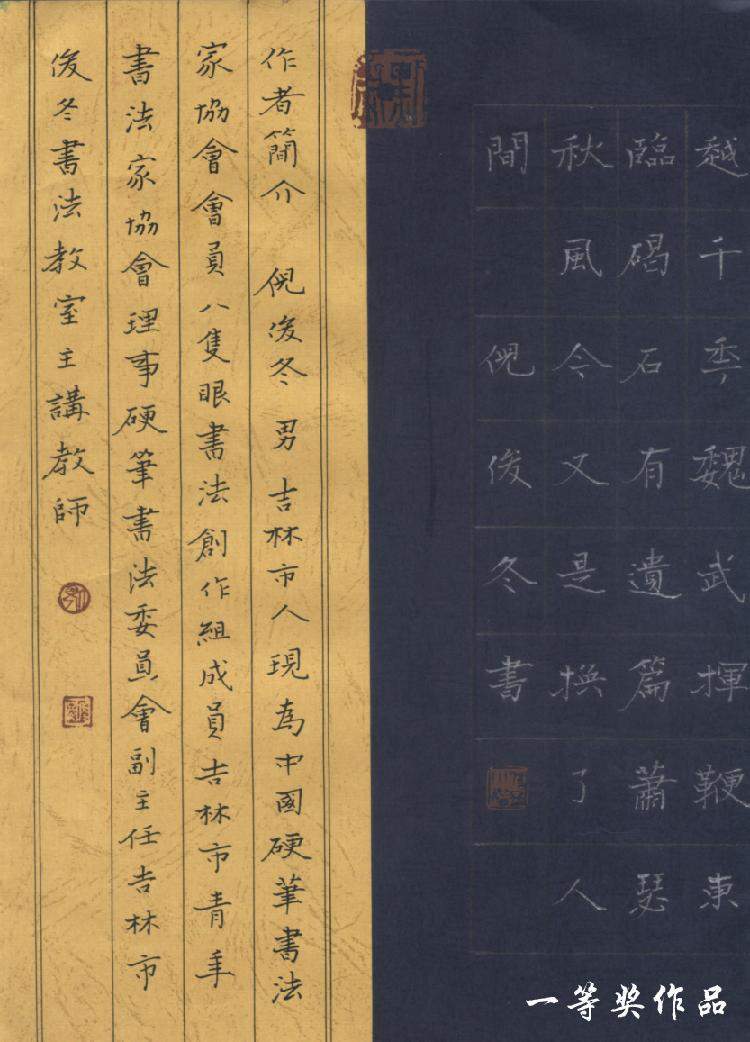 越千秊魏武揮鞭東
臨碣石有遺篇蕭瑟
秋風今又是換了人
間 倪俊冬書
作者簡介 倪俊冬 男 吉林市人現為中國硬筆書法
家協會會員八隻眼書法創作組成員吉林市青年
書法家協會理事硬筆書法委員會副主任吉林市
俊冬書法教室主講教師
一等奖作品